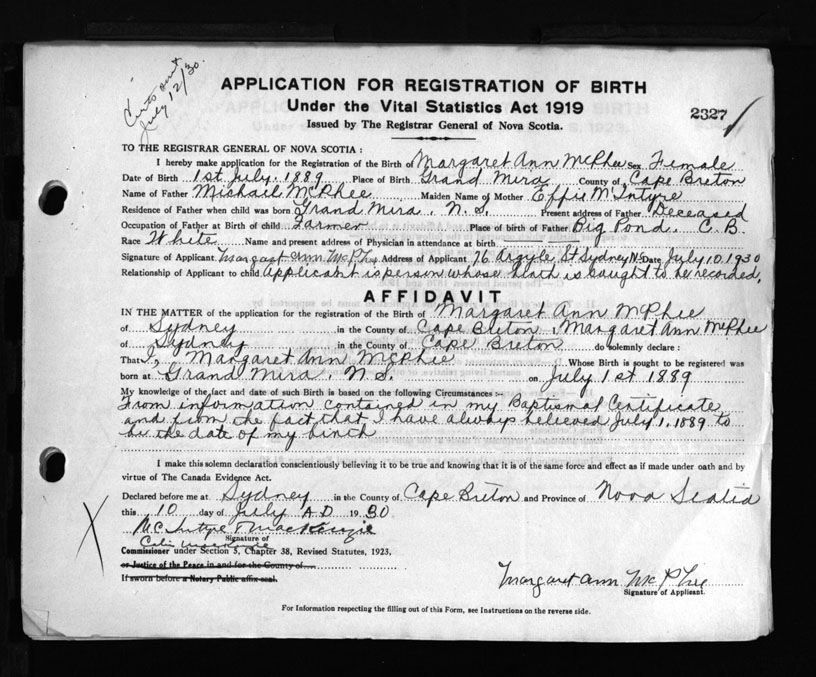 Certs sent
July 12/30.
APPLICATION FOR REGISTRATION OF BIRTH
Under the Vital Statistics Act 1919
2327
Issued by The Registrar General of Nova Scotia.
TO THE REGISTRAR GENERAL OF NOVA SCOTIA :
I hereby make application for the Registration of the Birth of Margaret Ann McPhee Sex Female
Date of Birth 1st July. 1889 Place of Birth Grand Mira County of Cape Breton
Name of Father Michail McPhee Maiden Name of Mother Effie McIntyre
Residence of Father when child was born Grand Mira, N.S. Present address of Father Deceased
Occupation of Father at Birth of child Farmer Place of birth of Father Big Pond, C.B.
Race White Name and present address of Physician in attendance at birth
Signature of Applicant Margaret Ann McPhee Address of Applicant 76 Argyle St Sydney N.S Date July 10, 1930
Relationship of Applicant to child Applicant is person whose birth is sought to be recorded.
AFFIDAVIT
IN THE MATTER of the application for the registration of the Birth of Margaret Ann McPhee
of Sydney in the County of Cape Breton I, Margaret Ann McPhee
of Sydney in the County of Cape Breton do solemnly declare :
That I, Margaret Ann McPhee Whose Birth is sought to be registered was
born at Grand Mira, N.S. on July 1st 1889
My knowledge of the fact and date of such Birth is based on the following Circumstances :-
From information contained in my Baptismal Certificate
and from the fact that I have always believed July 1, 1889 to
be the date of my birth
I make this solemn declaration conscientiously believing it to be true and knowing that it is of the same force and effect as if made under oath and by
virtue of The Canada Evidence Act.
Declared before me at Sydney in the County of Cape Breton and Province of Nova Scotia
this 10 day of July A.D. 1930
McIntyre & MacKenzie
Signature of
Colin MacKenzie
Commissioner under Section 5, Chapter 38, Revised Statutes, 1923,
or Justice of the Peace in and for the County of
If sworn before a Notary Public affix seal.
Margaret Ann McPhee
Signature of Applicant.
For Information respecting the filling out of this Form, see Instructions on the reverse side.